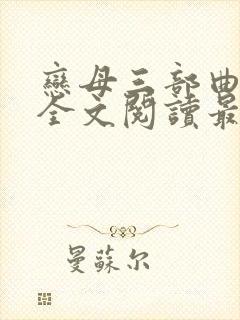 戀母三部曲
全文閱讀最
曼蘇尔